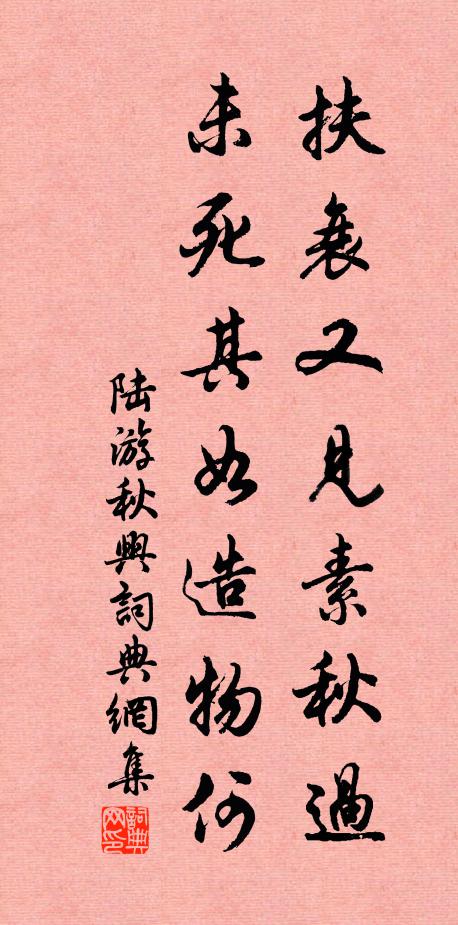 扶衰又見素秋過
未死其如造物何
陆游秋興詞典網集
詞典网印